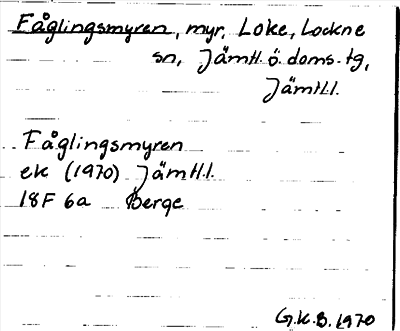 Fåglingsmyren, myr, Loke, Lockne
sn, Jämtl. ö. doms. tg,
Jämtl.l.
Fåglingsmyren
ek (1970) Jämtl.l.
18F 6a Berge
G.K.B. 1970